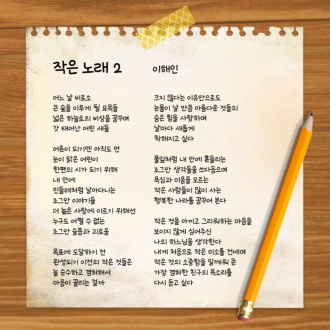 작은 노래 2
이해인
어느 날 비로소
큰 숲을 이루게 될 묘목들
넓은 하늘로의 비상을 꿈꾸며
갓 태어난 어린 새들
어른이 되기엔 아직도 먼
눈이 맑은 어린이
한편의 시가 되기 위해
내 안에
민들레처럼 날아다니는
조그만 이야기들
더 높은 사랑에 이르기 위해선
누구도 어쩔 수 없는
조그만 슬픔과 괴로움
목표에 도달하기 전
완성되기 이전의 작은 것들은
늘 순수하고 겸허해서
마음이 끌리는 걸까
크지 않다는 이유만으로도
눈물이 날 만큼 아름다운 것들의
숨은 힘을 사랑하며
날마다 새롭게
착해지고 싶다
풀잎처럼 내 안에 흔들리는
조그만 생각들을 쓰다듬으며
욕심과 미움을 모르는
작은 사람들이 많이 사는
행복한 나라를 꿈꾸어 본다
작은 것을 아끼고 그리워하는 마음을
보이지 않게 심어주신
나의 하느님을 생각한다
내게 처음으로 작은 미소를 건네며
작은 것의 소중함을 일깨워 준
가장 겸허한 친구의 목소리를
다시 듣고 싶다